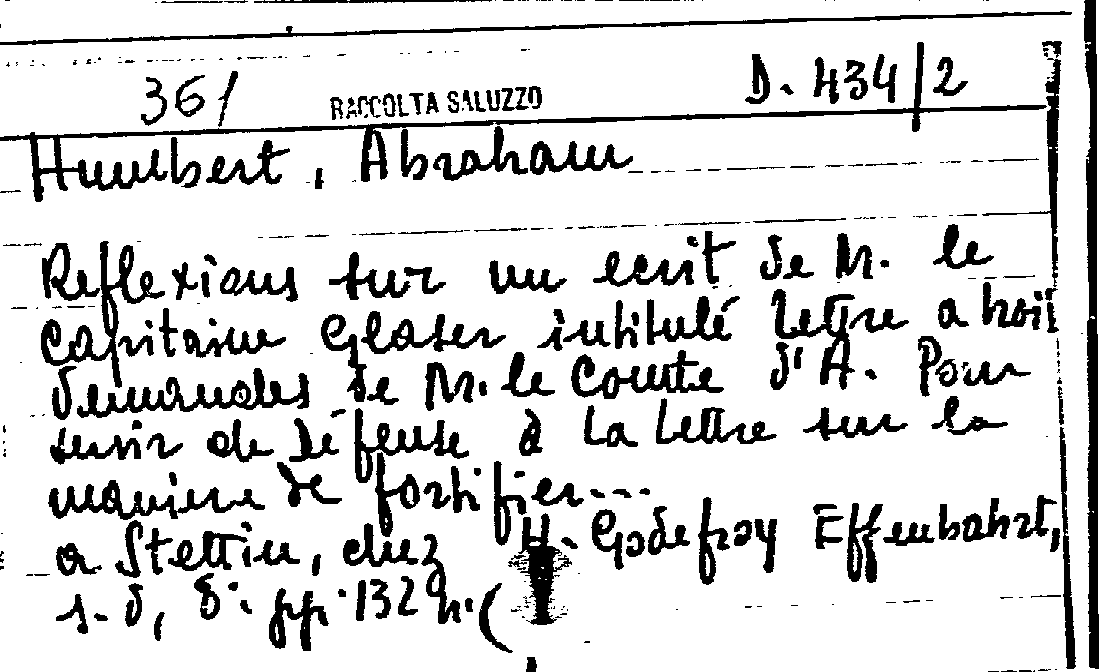 361 RACCOLTA SALUZZO D. 434/2
Humbert, Abraham
Reflexions sur un ecrit de M. le
Capitaine Glaser intitulé Lettre a troi
demandes de M. le Comte d'A. Pour
servir de défense à la lettre sur la
maniere de fortifier...
a Stettin, chez H. Godefroy Effenbahrt,
s. d, 8°. pp. 132 n. (